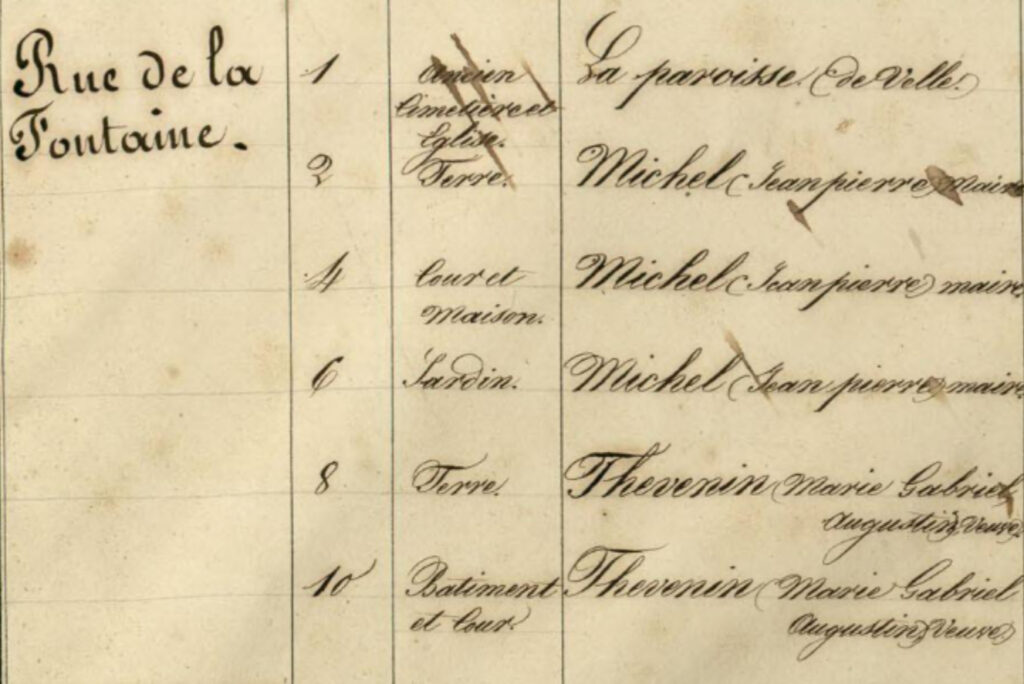 Rue de la
Fontaine.
1 Ancien La paroisse (de Velle.)
Cimetière et
Eglise.
2 Terre. Michel (Jean pierre) maire
4 Cour et Michel (Jean pierre) maire.
Maison.
6 Jardin. Michel (Jean pierre) maire.
8 Terre. Thevenin (Marie Gabriel
Augustin) Veuve)
10 Batiment Thevenin (Marie Gabriel
et Cour. Augustin) Veuve)